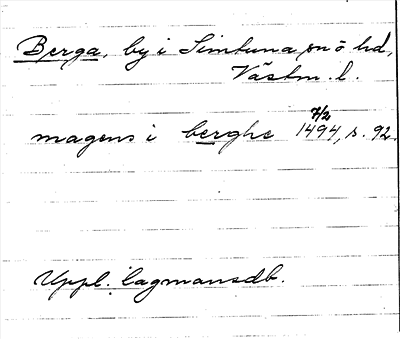 Berga, by i Simtuna sn o hd,
Västm. l.
magens i berghe 7/2 1494, s. 92.
Uppl. lagmansdb.